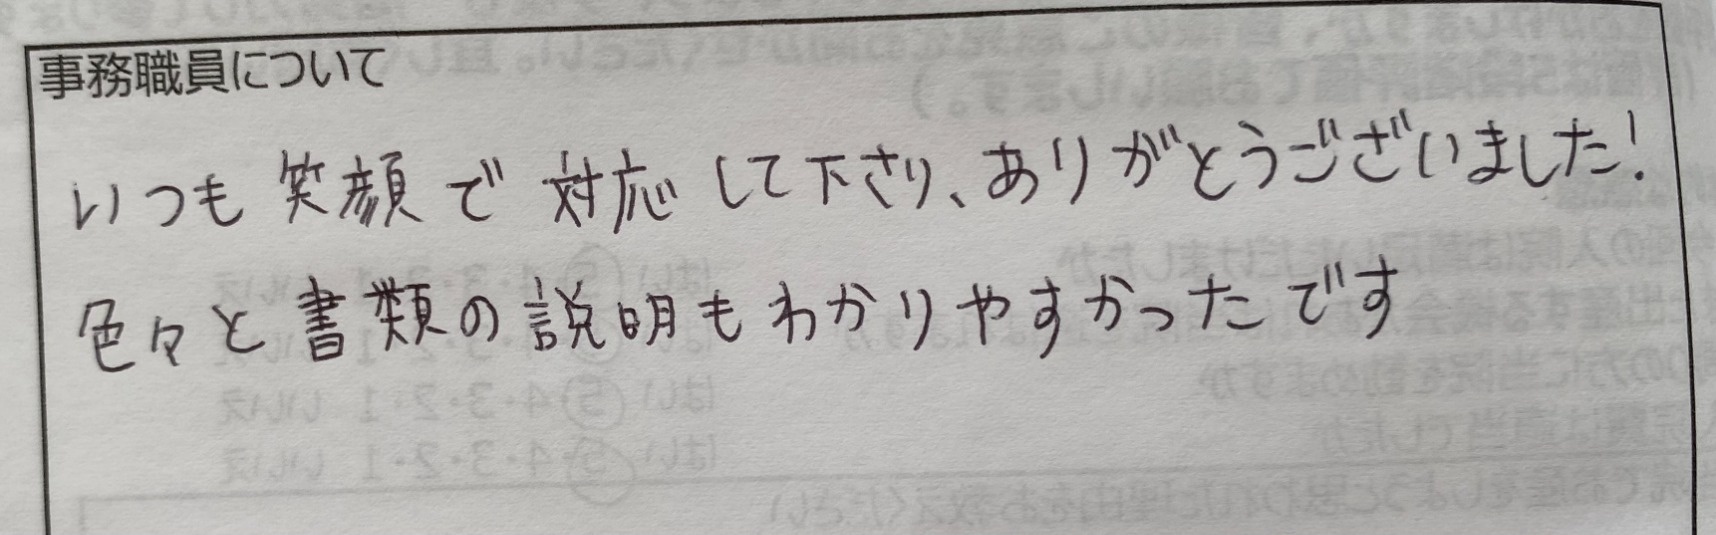 事務職員について
いつも笑顔で対応して下さり、ありがとうございました!
色々と書類の説明もわかりやすかったです